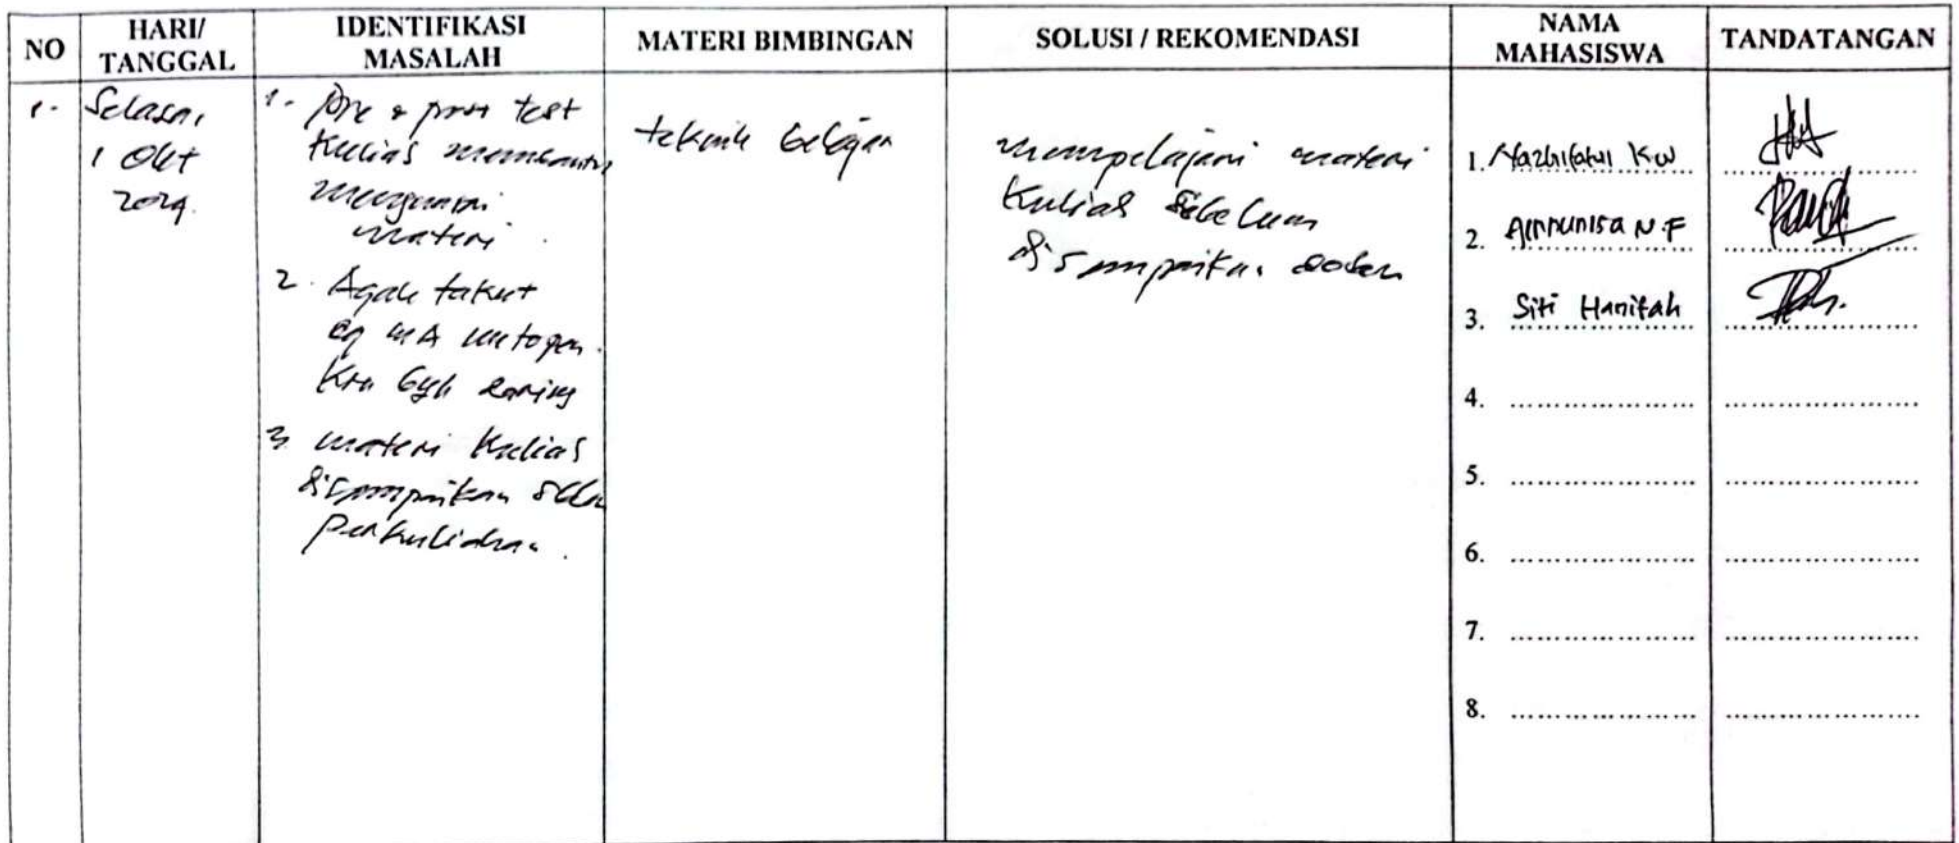 NO
HARI/
TANGGAL
IDENTIFIKASI
MASALAH
MATERI BIMBINGAN
SOLUSI / REKOMENDASI
NAMA
MAHASISWA
TANDATANGAN
1.
Selasa,
1 Okt
2024.
1. Pre & post test
Kuliah membantu
menguasai
materi.
2. Agak takut
dg MA metopen
Krn byk daring
3. materi Kuliah
disampaikan
perkuliahan.
teknik belajar
mempelajari materi
Kuliah sebelum
disampaikan dosen
1. Nazhifatul KW
2. Ainnunisa N.F
3. Siti Hanifah
4.
5.
6.
7.
8.